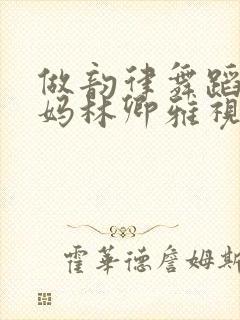 做韵律舞蹈
妈林卿雅视
霍华德詹姆斯